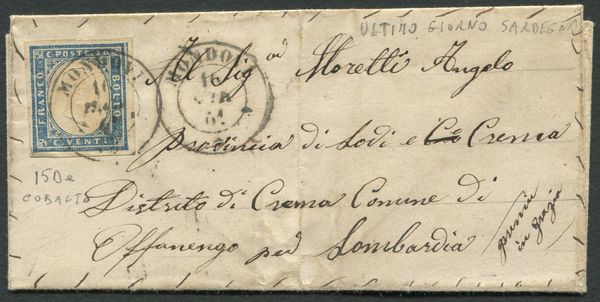 ULTIMO GIORNO SARDEGNA
C. POSTE 20
FRANCO
BOLLO
C. VENTI
MONDOVI
16
MONDOVI
16
61
Al Sig.od Moretti Angelo
Provincia di Lodi e Crema
Distrito di Crema Comune di
Offanengo per Lombardia
15De
COBALTO
in grazia